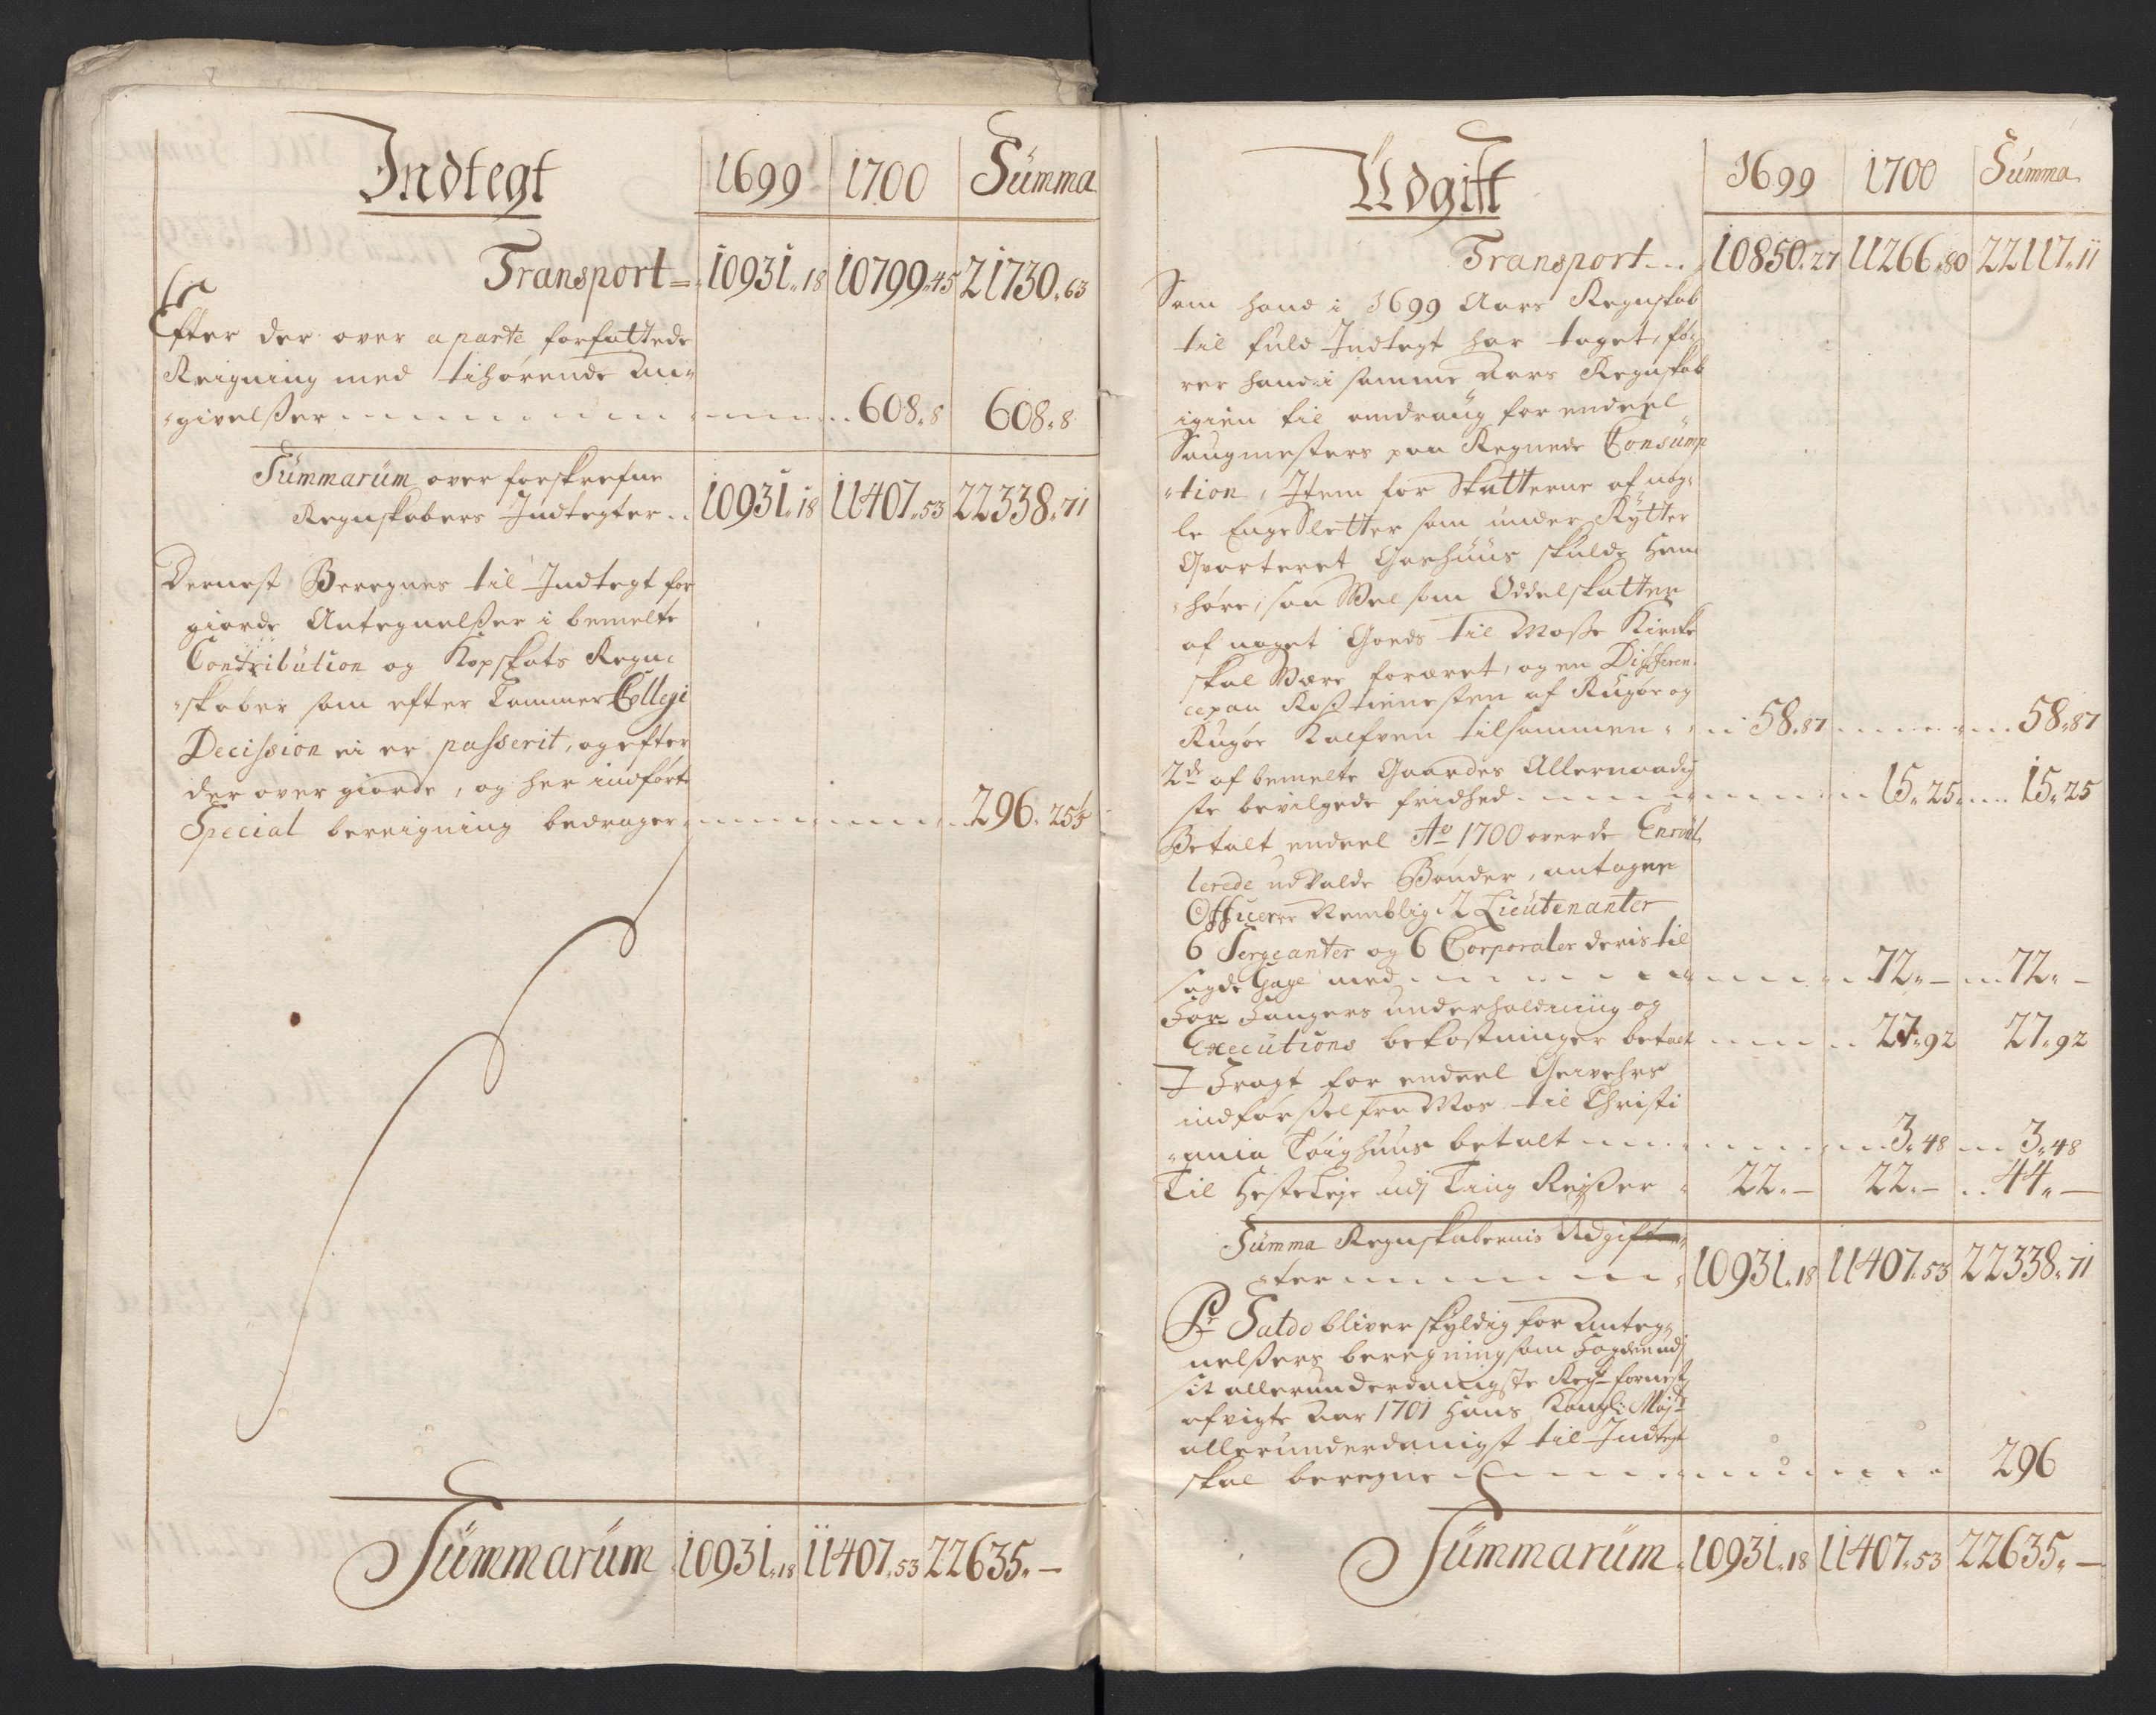 Indtegt 1699 1700 Summa
Transport 10931.18 10799.45 21730.63
Efter der over aparte forfattede
Reigning med tihørende An-
givelßer 608.8 608.8
Summarum over forskrefne
Regnskabers Indtegter 10931.18 11407.53 22338.71
Dernest Beregnes til Indtegt for
giorde Antegnelßer i bemelte
Contribution og Kopskats Regn-
skaber som efter Cammer Collegi
Decission ei er passerit, og efter
der over giorde, og her indførte
Special bereigning bedrager 296.25
Summarum 10931.18 11407.53 22635.—
Udgift 1699 1700 Summa
Transport 10850.27 11266.80 22117.11
Som hand i 1699 Aars Regnskab
til fuld Indtegt har taget, fø-
rer hand i samme Aars Regnskab
igien til omdraug for endeel
Saugmesters paa Regnede Consump
tion, Item for Skatterne af nog-
le Enge Sletter som under Rytter
Qvarteret Gaehuus skulde hen
høre, saa Wel som Oddelskatten
af noget Goeds til Moße Kircke
skal Være foræret, og en Differen-
ce paa Roßtienesten af Rugøe og
Rugøe Kalfven tilsammen 58.87 58.87
2de af bemelte Gaardes Allernaadig
ste bevilgede friehed 15.25 15.25
Betalt endeel Ao 1700 over de Enroul
lerede udValde Bønder, antagne
Officerer Nemblig 2 Lieutenanter
6 Sergeanter og 6 Corporaler deris til
sagde Gage med 72.— 72.—
For Fangers underholdning og
Executions bekostninger betalt 27.92 27.92
I Fragt for endeel Geivehrs
indførßel fra Mos til Christi
ania Tøighuus betalt 3.48 3.48
Til Hesteleje udj Ting Reißer 22.— 22.— 44.—
Summa Regnskabernis Udgif
ter 10931.18 11407.53 22338.71
Pr Saldo bliver skyldig for Anteg-
nelßers beregning som Fogden udj
sit allerunderdanigste Regn for nest
afvigte Aar 1701 Hans Kongl: Mayt
allerunderdanigst til Indtegt
skal beregne 296
Summarum 10931.18 11407.53 22635.—